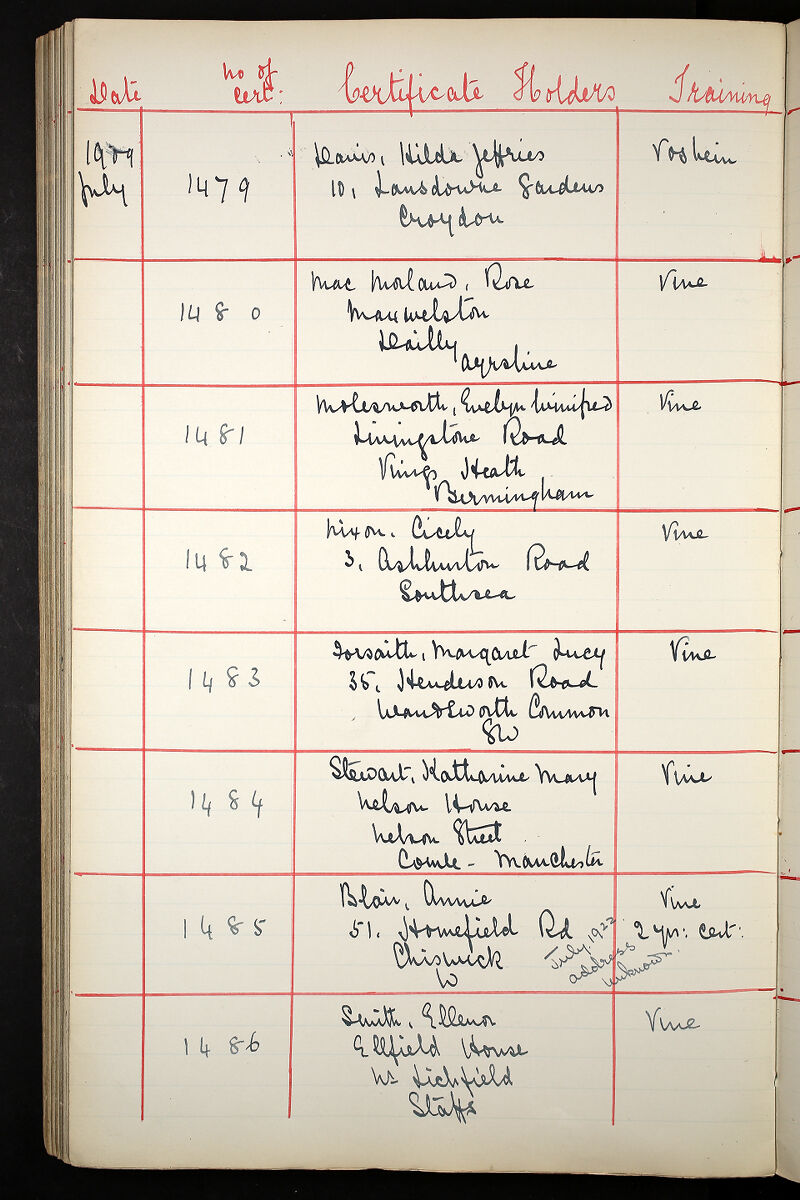 Date no of cert: Certificate Holders Training
1909 July 1479 Davis, Hilda Jeffries Voshein
10, Lansdowne Gardens
Croydon
1480 Mac Morland, Rose Vine
Maxwelston
Dailly
Ayrshire
1481 Molesworth, Evelyn Winifred Vine
Livingstone Road
Kings Heath
Bermingham
1482 Nixon, Cicely Vine
3, Ashburton Road
Southsea
1483 Forsaith, Margaret Lucy Vine
35, Henderson Road
Wandsworth Common
SW
1484 Stewart, Katharine Mary Vine
Nelson House
Nelson Street
Manchester
1485 Blair, Annie Vine
51, Homefield Rd 2 yrs: cert:
Chiswick
W
July. 1922.
address
unknown.
1486 Smith, Ellenor Vine
Ellfield House
Nr Lichfield
Staffs